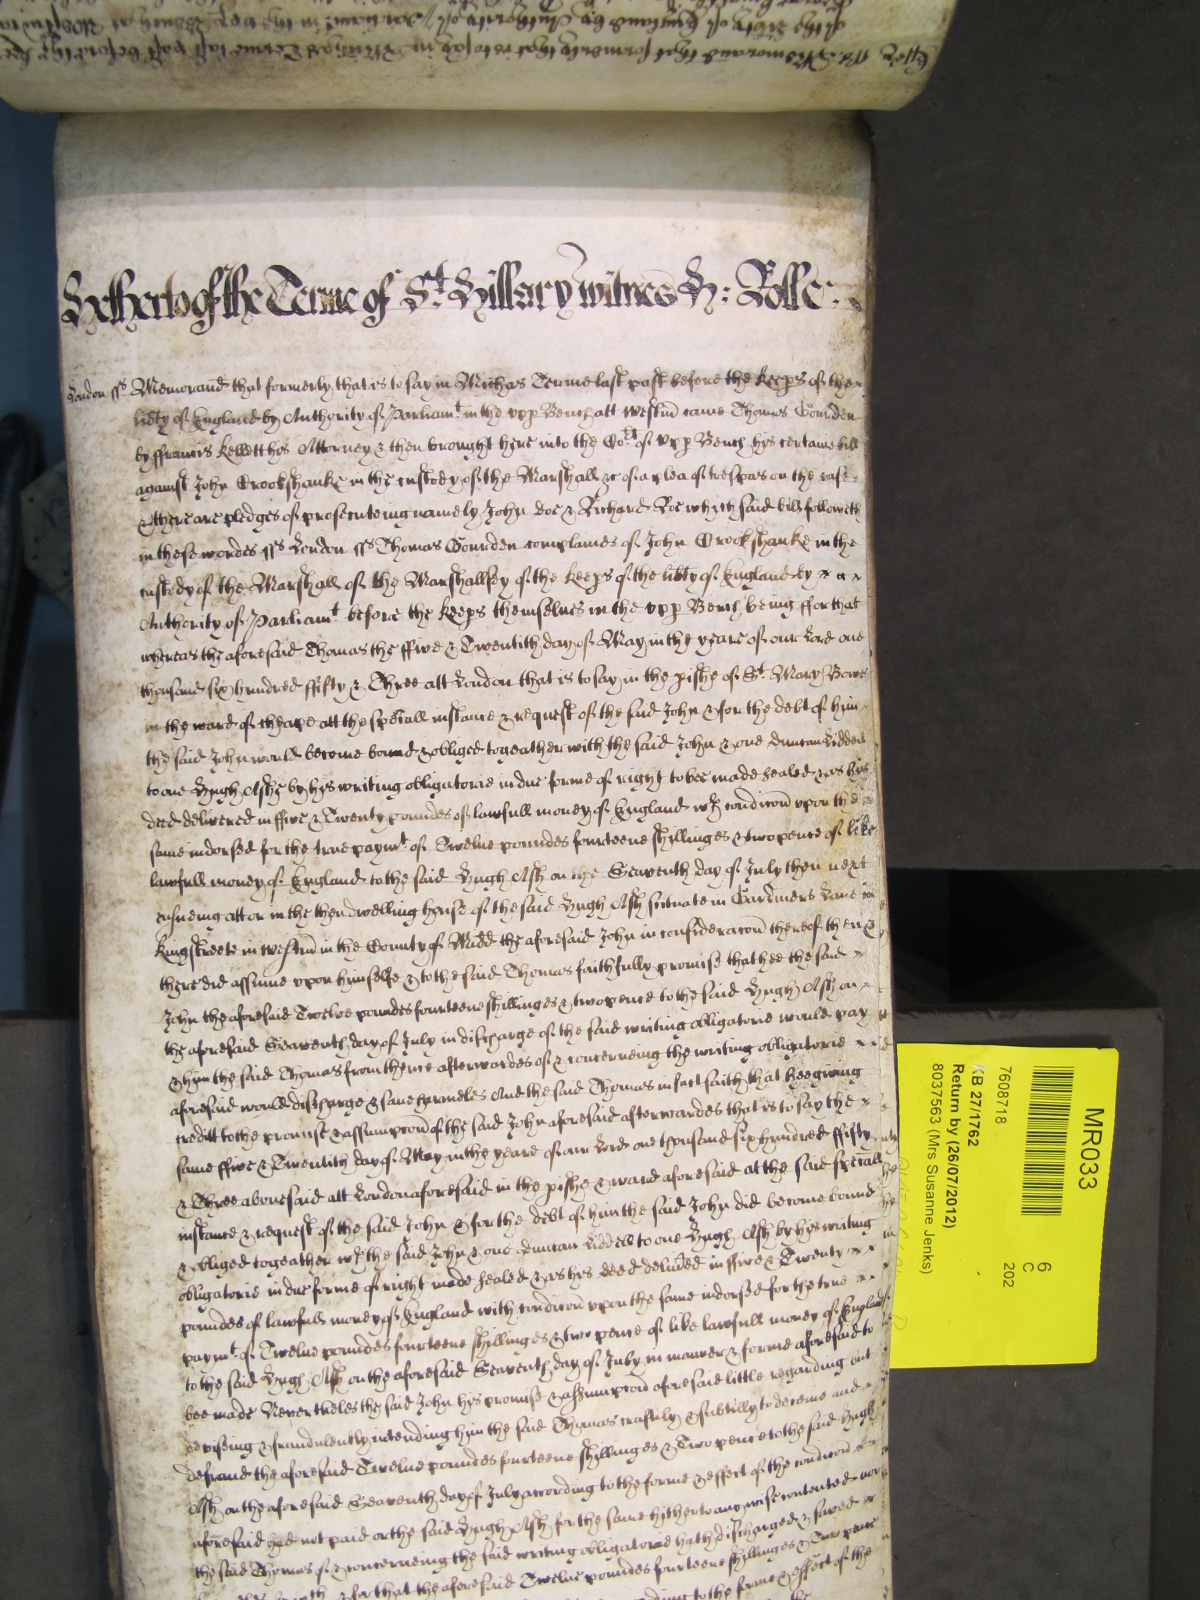 Hetherto of the Terme of St Hillary witnes H: Rolle:
London ss Memorand that formerly that is to say in Michas Terme last past before the Keeps of the
libty of England by Authority of Parliamt in the upp Bench att Westm came Thomas Gourden
by ffrancis Kellett his Attorney & then brought here into the Cort of upp Bench his certaine bill
against John Crookshanke in the custody of the Marshall &c of a plea of trespas on the case
& there are pledges of prosecuteing namely John Doe & Richard Roe which said bill followeth
in these wordes ss London ss Thomas Gourden complaines of John Crookshanke in the
custody of the Marshall of the Marshallsey of the Keeps of the libty of England by
Authority of Parliamt before the Keeps themselves in the upp Bench being ffor that
whereas the aforesaid Thomas the ffive & Twentith day of May in the yeare of our Lord one
thousand six hundred ffifty & Three att London that is to say in the pishe of St Mary Bowe
in the ward of Cheape att the speciall instance & request of the said John & for the debt of him
the said John would become bound & obliged togeather with the said John & one Duncan Liddell
to one Hugh Ashe by his writing obligatorie in due forme of right to bee made sealed & as his
deed delivered in ffive & Twenty poundes of lawfull money of England wth condicon upon the
same indorsed for the true paymt of Twelve poundes fourteene shillinges & two pence of like
lawfull money of England to the said Hugh Ash on the Seaventh day of July then next
ensueing att or in the then dwelling house of the said Hugh Ash scituate in Gardiners Lane
Kingstreete in Westm in the County of Midd the aforesaid John in consideracon thereof then &
there did assume upon himselfe & to the said Thomas faithfully promise that hee the said
John the aforesaid Twelve poundes fourteene shillinges & two pence to the said Hugh Ash on
the aforesaid Seaventh day of July in discharge of the said writing obligatorie would pay
& him the said Thomas from thence afterwardes of & concerneing the writing obligatorie
aforesaid would discharge & save harmeles And the said Thomas in fact saith that hee giving
creditt to the promise & assumpcon of the said John aforesaid afterwardes that is to say the
same ffive & Twentith day of May in the yeare of our Lord one thousand six hundred ffifty
& Three abovesaid att London aforesaid in the pishe & ward aforesaid at the said speciall
instance & request of the said John & for the debt of him the said John did become bound
& obliged togeather wth the said John & one Duncan Liddell to one Hugh Ash by his writing
obligatorie in due forme of right made sealed & as his deed delivred in ffive & Twenty
poundes of lawfull money of England with condicon upon the same indorsed for the true
paymt of Twelve poundes fourteene shillinges & two pence of like lawfull money of England
to the said Hugh Ash on the aforesaid Seaventh day of July in manner & forme aforesaid to
bee made Neverthelesse the said John his promise & assumpcon aforesaid little regarding but
devising & fraudulently intending him the said Thomas craftily & subtilly to deceive and
defraud the aforesaid Twelve poundes fourteene shillinges & Two pence to the said Hugh
Ash on the aforesaid Seaventh day of July according to the forme & effect of the condicon
aforesaid had not paid or the said Hugh Ash for the same hitherto any wise contented nor
the said Thomas of & concerneing the said writing obligatorie hath discharged & saved
for that the aforesaid Twelve poundes fourteene shillinges & Two pence
to the forme & effect of the
MR033
7608718
6
C
202
KB 27/1762
Return by (26/07/2012)
8037563 (Mrs Susanne Jenks)